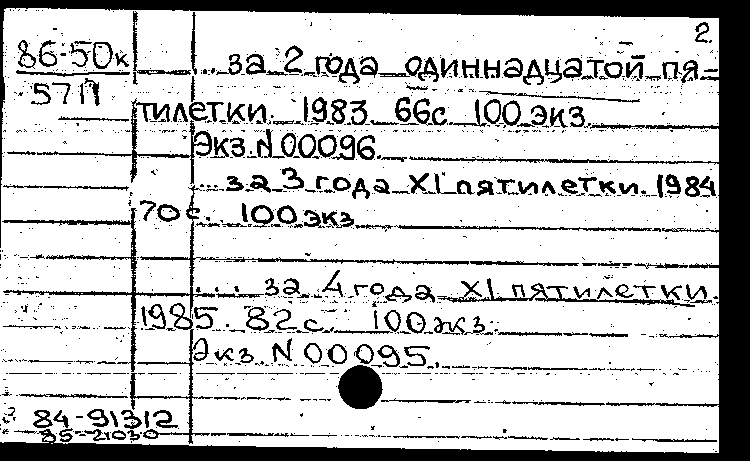 2.
86-50к
57П
... за 2 года одиннадцатой пя-
тилетки. 1983. 66с 100 экз.
Экз. N 00096.
... за 3 года XI пятилетки. 1984
70 с. 100 экз
... за 4 года XI пятилетки.
1985. 82 с. 100 экз.
Экз. N 00095.
84-91312
85-21030